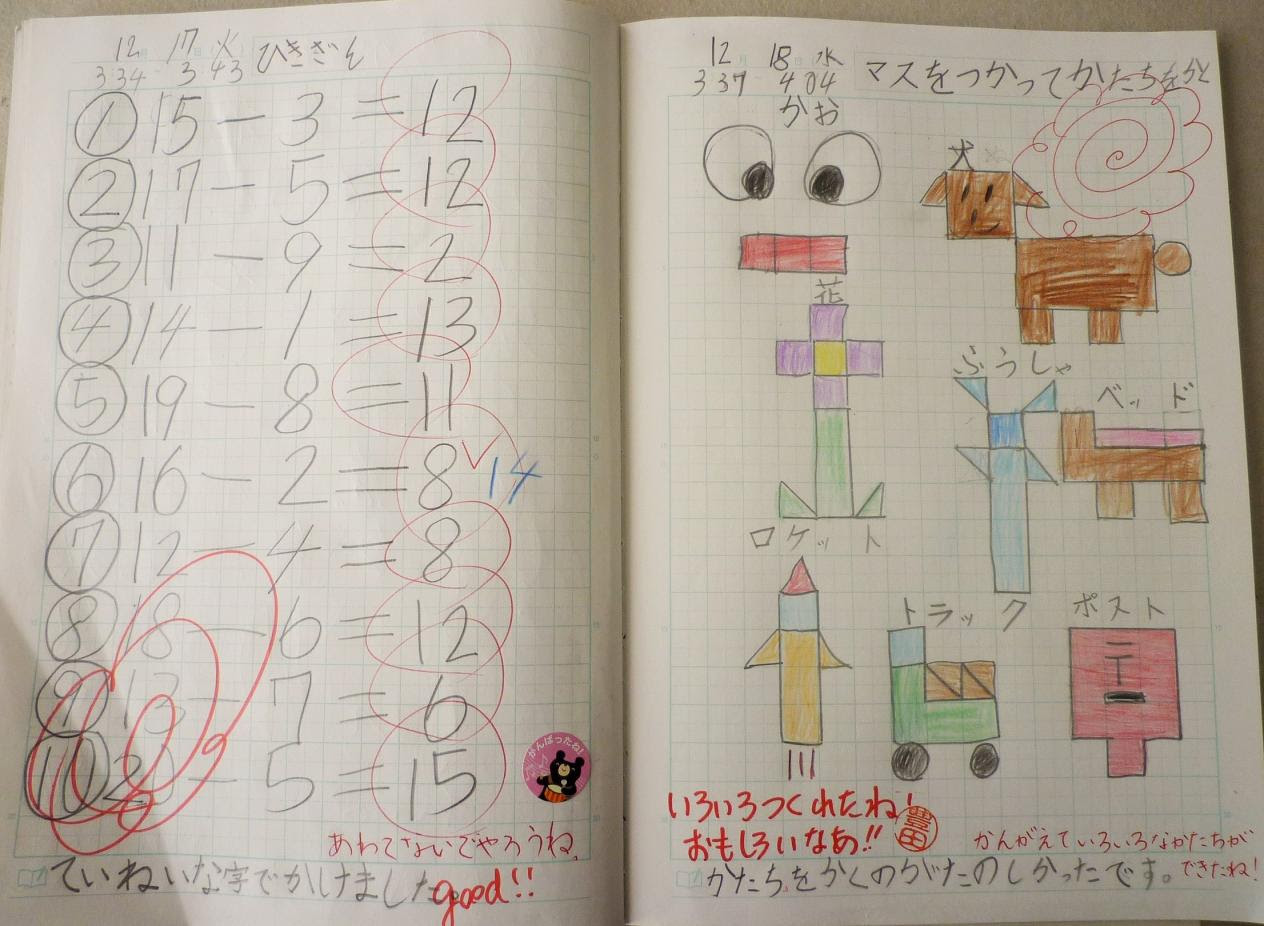 12月 17日 火 ひきざん
3:34 3 43
① 15 − 3 = 12
② 17 − 5 = 12
③ 11 − 9 = 2
④ 14 − 1 = 13
⑤ 19 − 8 = 11
⑥ 16 − 2 = 8 14
⑦ 12 − 4 = 8
⑧ 18 − 6 = 12
⑨ 13 − 7 = 6
⑩ 20 − 5 = 15
がんばったね!
あわてないでやろうね。
ていねいな字でかけました。
good!!
12 18 水 マスをつかってかたちをかく
3 37 4 04
かお
犬
花
ふうしゃ
ベッド
ロケット
トラック
ポスト
〒
いろいろつくれたね!
おもしろいなあ!!
豊田
かんがえていろいろなかたちが
できたね!
かたちをかくのがたのしかったです。